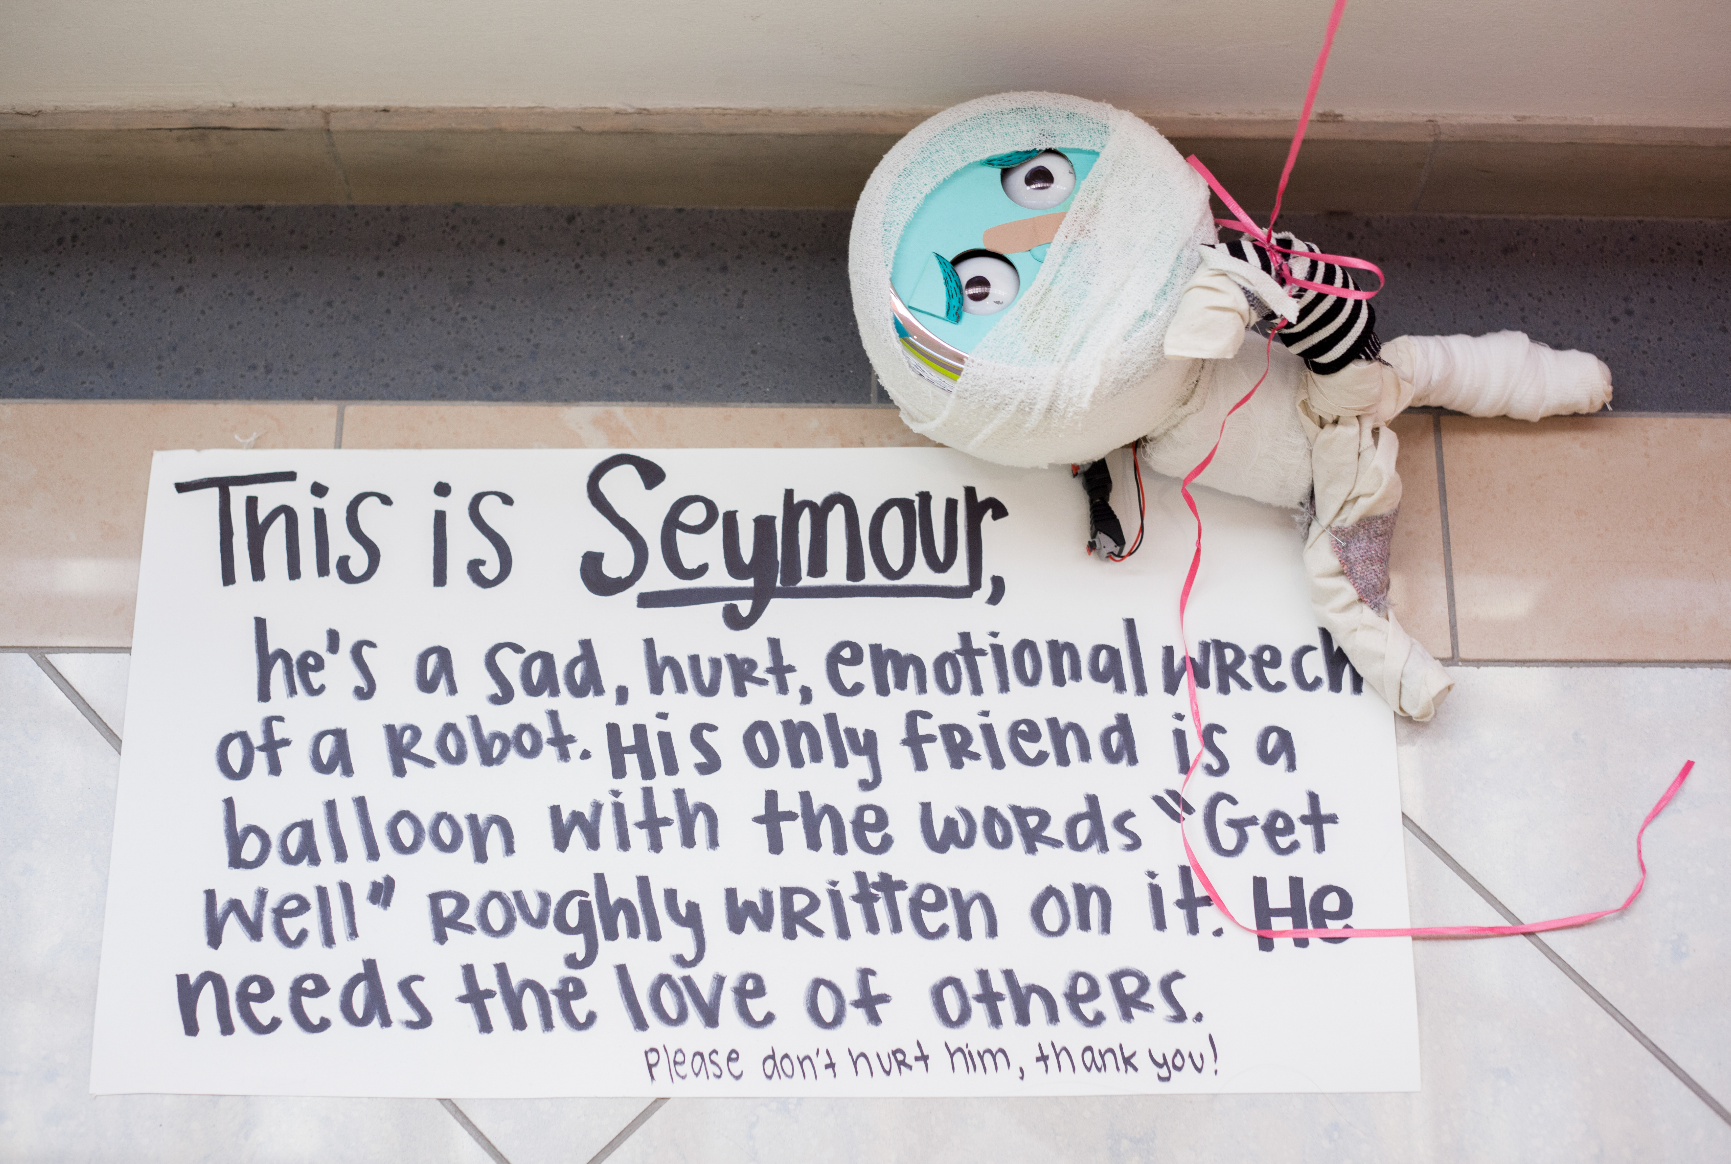 This is Seymour,
he's a sad, hurt, emotional wrech
of a robot. His only friend is a
balloon with the words "Get
Well" roughly written on it. He
needs the love of others.
Please don't hurt him, thank you!